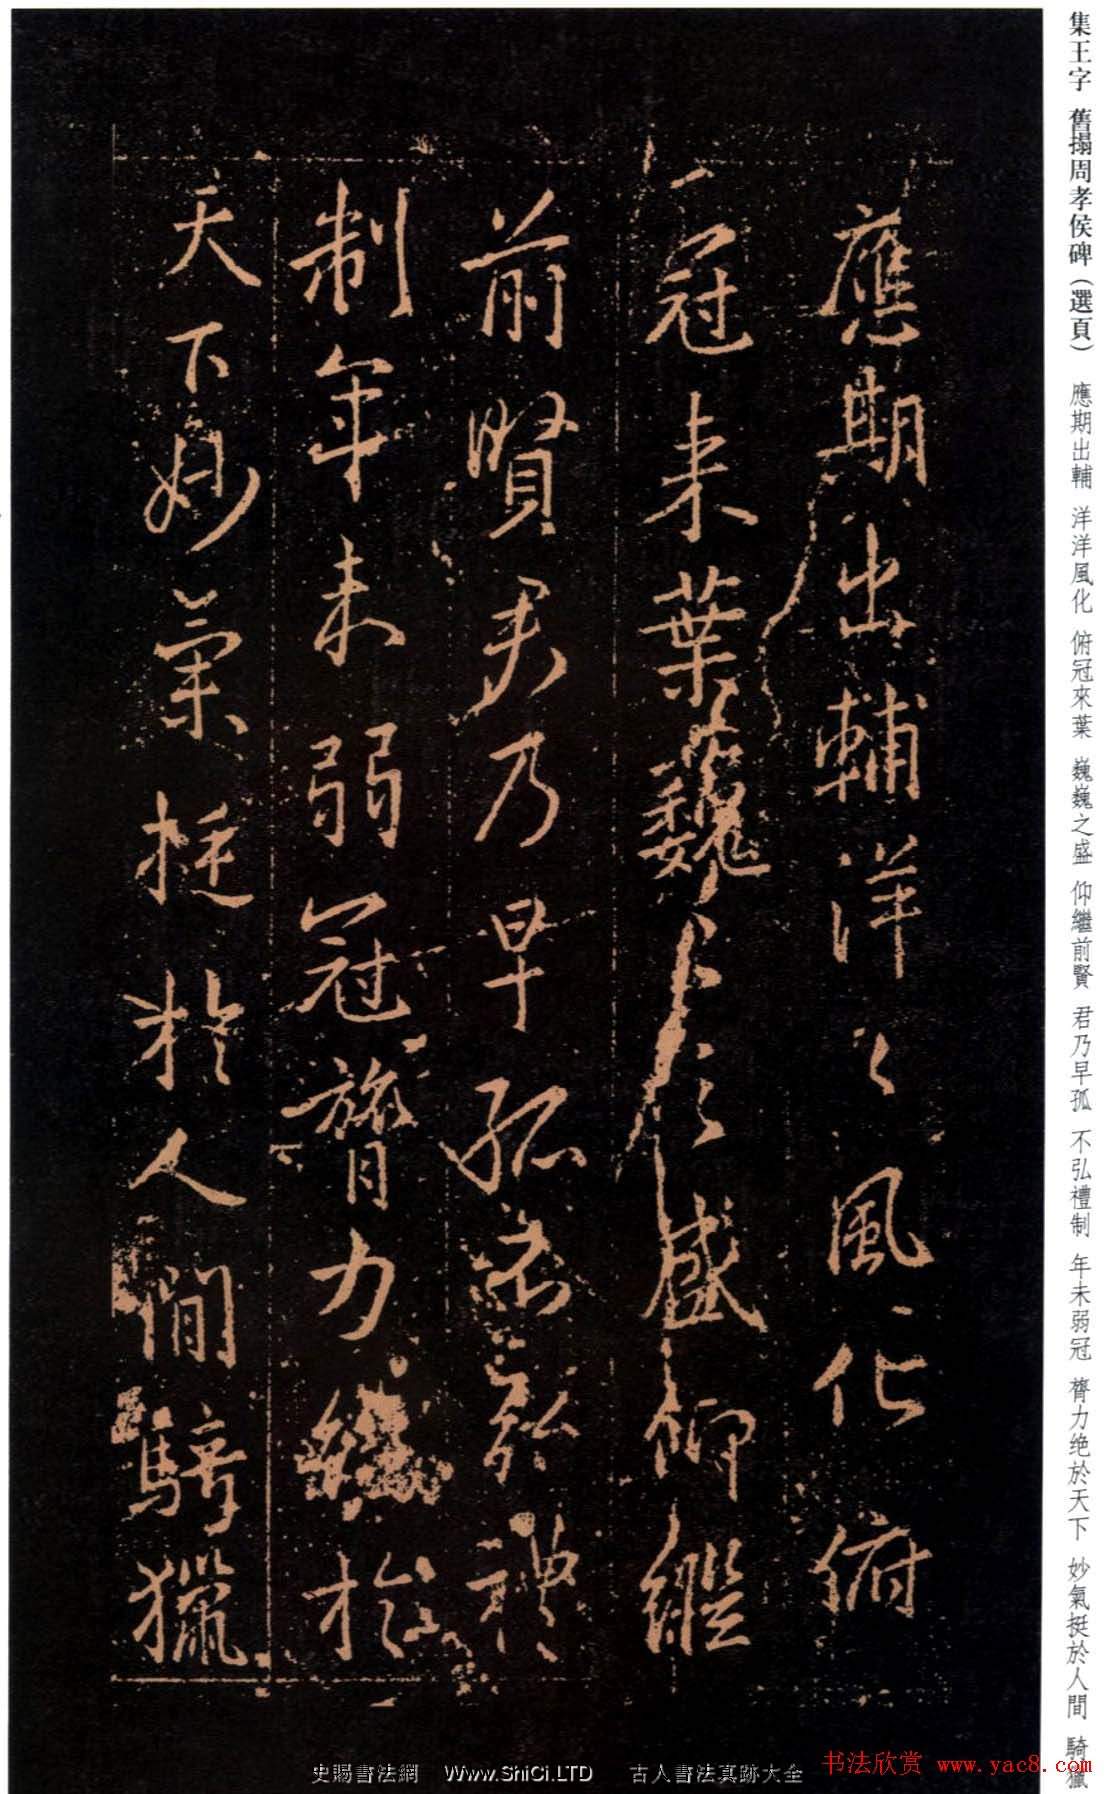 集王字 舊搨周孝侯碑（選頁） 應期出輔 洋洋風化 俯冠來葉 巍巍之盛 仰繼前賢 君乃早孤 不弘禮制 年未弱冠 膂力绝於天下 妙氣挺於人間 騎獵
應期出輔洋〻風化俯
冠来葉巍〻之盛仰繼
前賢君乃早孤不弘禮
制年未弱冠膂力絶於
天下妙氣挺於人間騎獵
史賜書法網 Www.ShiCi.LTD 古人書法真跡大全
书法欣赏 www.yac8.com